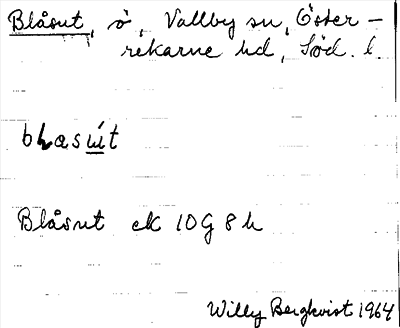 Blåsut, ö, Vallby sn, Öster-
rekarne hd, Söd. l.
blɑsút
Blåsut ek 10G 8h
Willy Bergkvist 1964